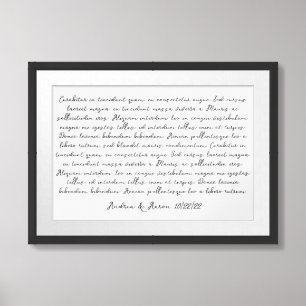 Curabitur in tincidunt quam, eu consectetur augue. Sed cursus,
laoreet magna eu tincidunt massa viverra a. Mauris ac
sollicitudin eros. Aliquam interdum leo in congue vestibulum
magna mi egestas tellus, id interdum tellus sem at turpis.
Donec laoreet bibendum bibendum. Aenean pellentesque leo a
libero rutrum, sed blandit mauris condimentum. Curabitur in
tincidunt quam, eu consectetur augue. Sed cursus, laoreet magna
eu tincidunt massa viverra a. Mauris ac sollicitudin eros.
Aliquam interdum leo in congue vestibulum magna mi egestas
tellus, id interdum tellus sem at turpis. Donec laoreet
bibendum bibendum. Aenean pellentesque leo a libero rutrum
Andrea & Aaron 10/22/22